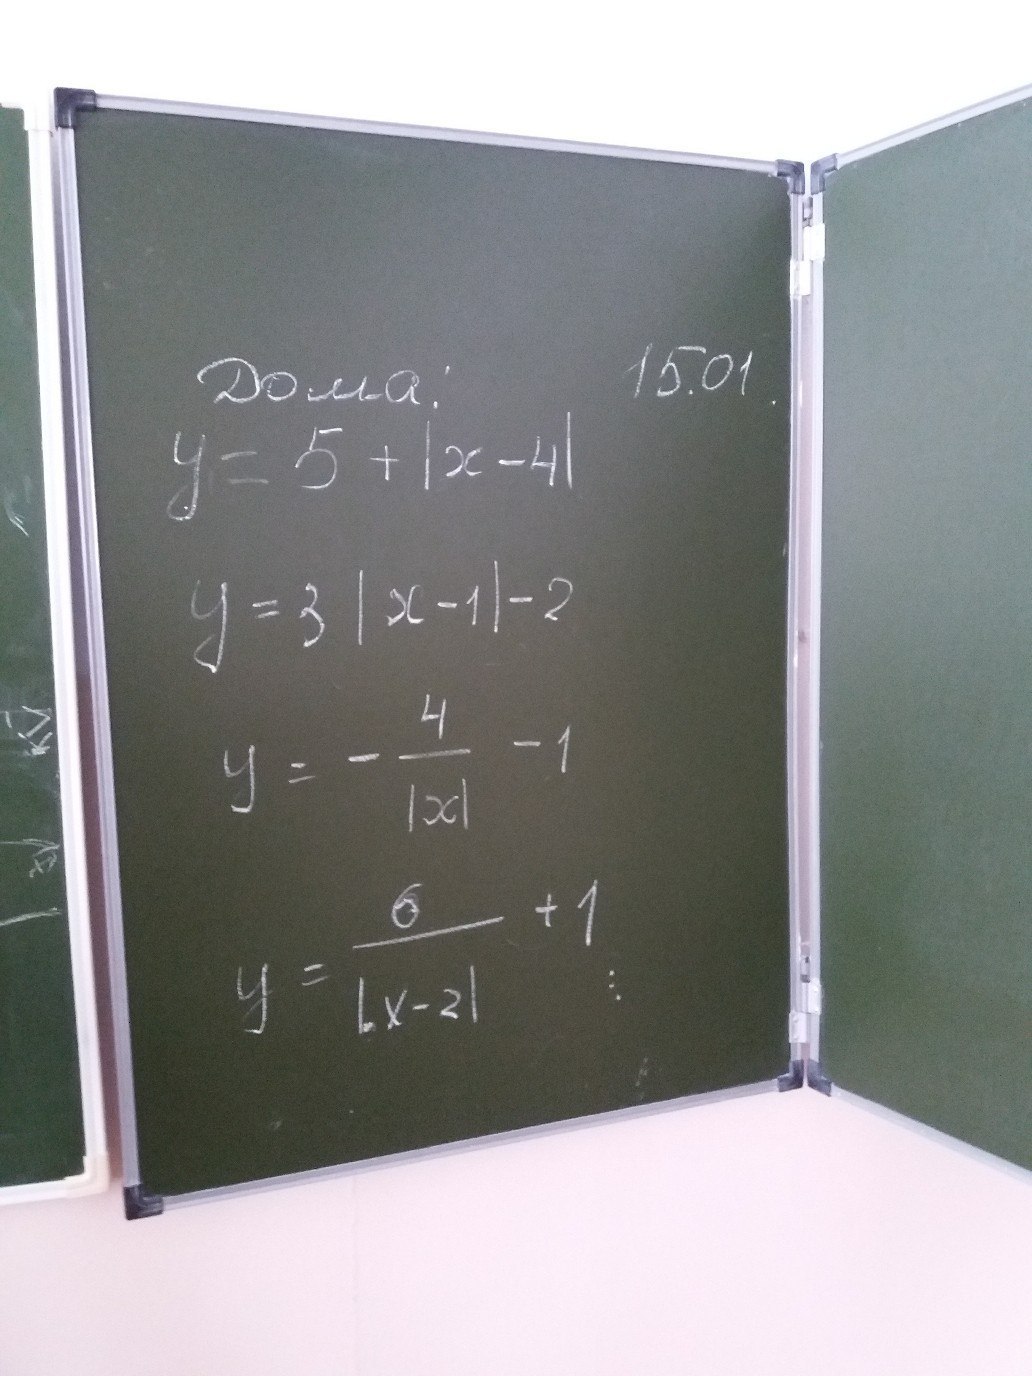 Дома: 15.01.
y = 5 + |x - 4|
y = 3 |x - 1| - 2
y = - 4/|x| - 1
y = 6/|x - 2| + 1